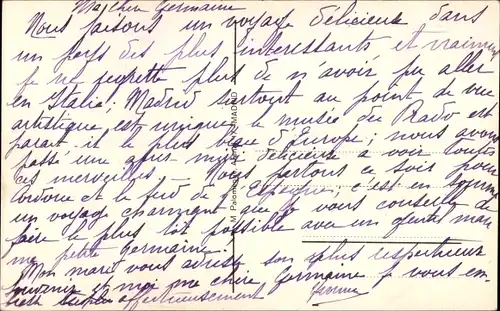 Ma chère Germaine
Nous faisons un voyage délicieux dans
un pays des plus interessants et vraiment
je ne regrette plus de n'avoir pu aller
en Italie; Madrid surtout au point de vue
artistique est unique, le musée du Prado est
parait-il le plus beau d'Europe; nous avons
passé une après midi délicieuse a voir toutes
ces merveilles — Nous partons ce soir pour
Cordoue et le sud de l'Espagne, c'est en somme
un voyage charmant que je vous conseille de
faire le plus tôt possible avec un gentil mari
ma petite Germaine.
Mon mari vous adresse son plus respectueux
souvenir et moi ma chère Germaine je vous
affectueusement
MADRID